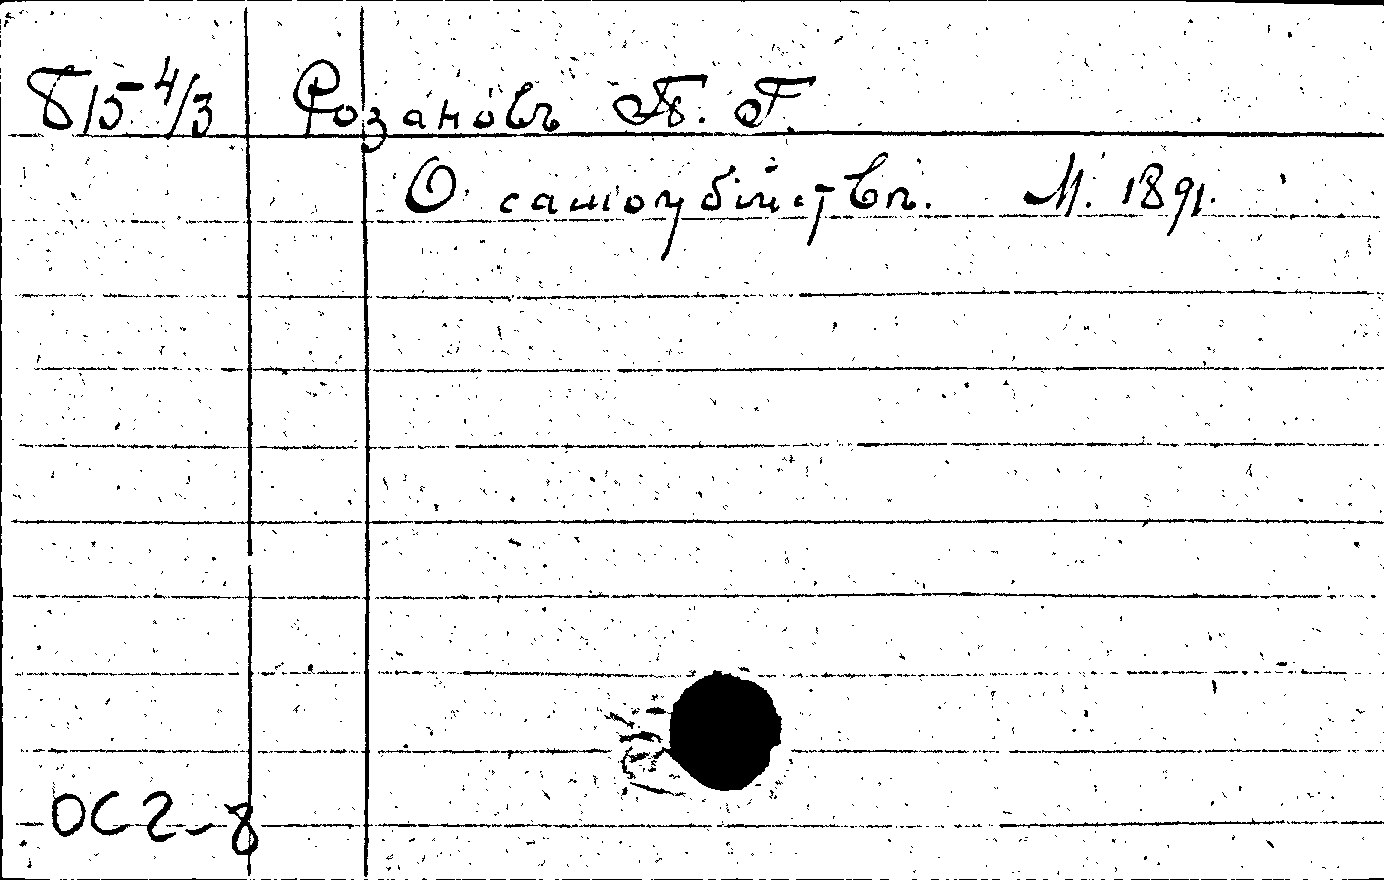 Б15 4/3 Розановъ П. Г.
О самоубійствѣ. М. 1891.
ОС 2-8